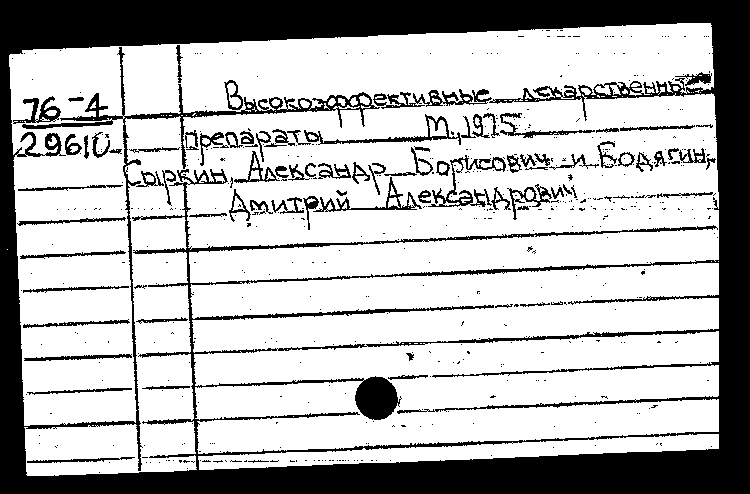 76-4
29610
Высокоэффективные лекарственные
препараты М., 1975
Сыркин, Александр Борисович и Бодягин,
Дмитрий Александрович